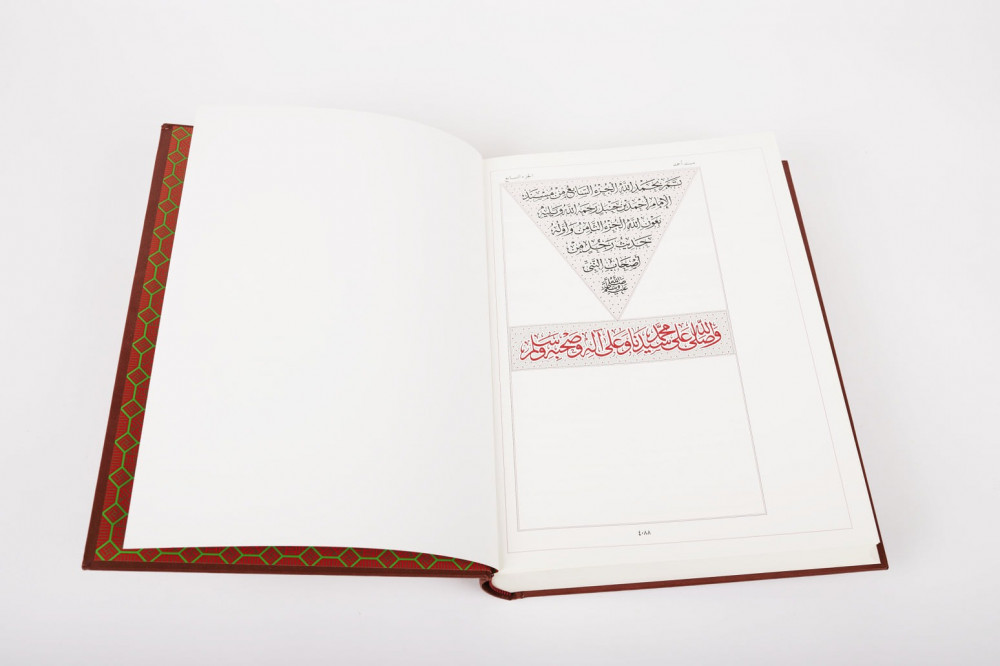 مسند أحمد
الجزء السابع
تم بحمد الله الجزء السابع من مسند
الإمام أحمد بن حنبل رحمه الله ويليه
بعون الله الجزء الثامن وأوله
حديث رجل من
أصحاب النبي
صلى الله عليه وسلم
وصلى الله على سيدنا محمد وعلى آله وصحبه وسلم
٤٠٨٨